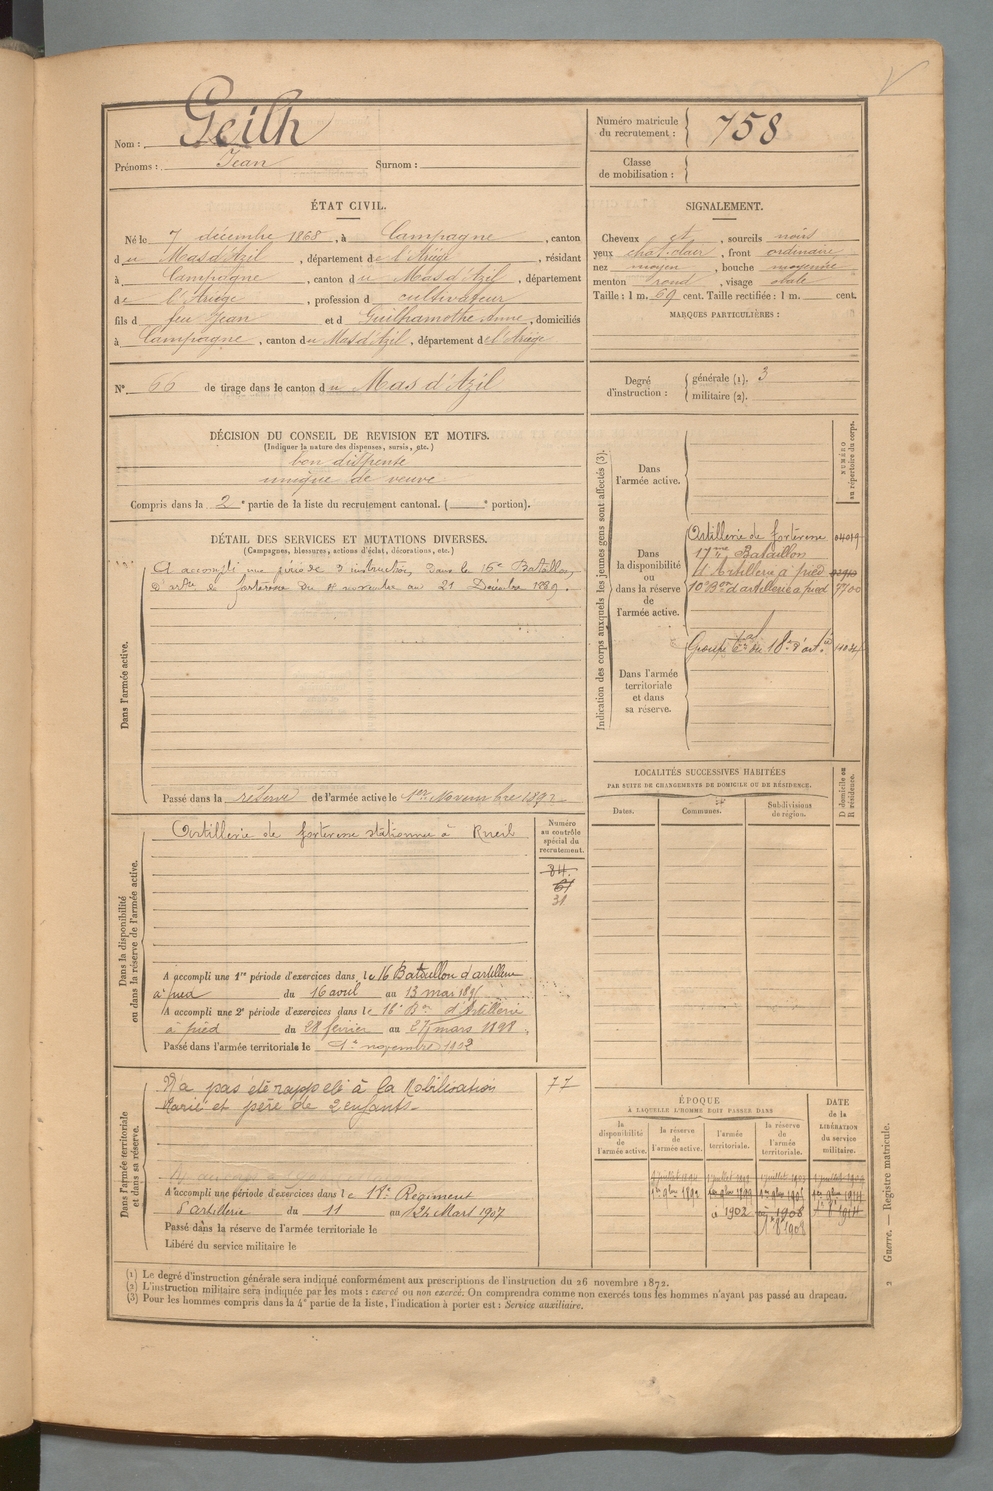 Nom : Geilh
Prénoms : Jean Surnom :
Numéro matricule du recrutement : 758
Classe de mobilisation :
ÉTAT CIVIL.
Né le 7 décembre 1868, à Campagne, canton
du Mas d'Azil, département de l'Ariège, résidant
à Campagne, canton du Mas d'Azil, département
de l'Ariège, profession d cultivateur
fils d feu Jean et d Guilhamothe Anne, domiciliés
à Campagne, canton du Mas d'Azil, département de l'Ariège
N° 66 de tirage dans le canton du Mas d'Azil
SIGNALEMENT.
Cheveux et, sourcils noirs
yeux chat. clair, front ordinaire
nez moyen, bouche moyenne
menton rond, visage ovale
Taille : 1 m. 69 cent. Taille rectifiée : 1 m. cent.
MARQUES PARTICULIÈRES :
Degré d'instruction : générale (1). 3
militaire (2).
DÉCISION DU CONSEIL DE REVISION ET MOTIFS.
(Indiquer la nature des dispenses, sursis, etc.)
bon dispensé
unique de veuve
Compris dans la 2e partie de la liste du recrutement cantonal. ( e portion).
DÉTAIL DES SERVICES ET MUTATIONS DIVERSES.
(Campagnes, blessures, actions d'éclat, décorations, etc.)
Dans l'armée active.
A accompli une période d'instruction, dans le 16e Bataillon
d'artie de forteresse du novembre au 21 Décembre 1889.
Passé dans la réserve de l'armée active le 1er Novembre 1892
Indication des corps auxquels les jeunes gens sont affectés (3).
NUMÉRO au répertoire du corps.
Dans l'armée active.
Dans la disponibilité ou dans la réserve de l'armée active.
Artillerie de forteresse 04019
17me Bataillon
4 Artillerie à pied
10e Bon d'artillerie à pied 7700
Dans l'armée territoriale et dans sa réserve.
Groupe tal du 18e d'artie
LOCALITÉS SUCCESSIVES HABITÉES
PAR SUITE DE CHANGEMENTS DE DOMICILE OU DE RÉSIDENCE.
Dates. Communes. Subdivisions de région. D domicile ou R résidence.
Dans la disponibilité ou dans la réserve de l'armée active.
Numéro au contrôle spécial du recrutement.
Artillerie de forteresse stationnée à Rueil
84.
61
31
A accompli une 1re période d'exercices dans le 16 Bataillon d'artillerie
à pied du 16 avril au 13 mai 189
A accompli une 2e période d'exercices dans le 16e Bon d'Artillerie
à pied du 28 février au 27 mars 1898.
Passé dans l'armée territoriale le 1er novembre 1902
Dans l'armée territoriale et dans sa réserve.
N'a pas été rappelé à la Mobilisation 77
Marié et père de 2 enfants
A accompli une période d'exercices dans le 18e Régiment
d'artillerie du 11 au 24 Mars 1907
Passé dans la réserve de l'armée territoriale le
Libéré du service militaire le
ÉPOQUE
À LAQUELLE L'HOMME DOIT PASSER DANS
DATE de la LIBÉRATION du service militaire.
la disponibilité de l'armée active. la réserve de l'armée active. l'armée territoriale. la réserve de l'armée territoriale.
1er 9bre 1892 1er 9bre 1899 1er 9bre 1905 1er 9bre 1914
1902 1908
1908
(1) Le degré d'instruction générale sera indiqué conformément aux prescriptions de l'instruction du 26 novembre 1872.
(2) L'instruction militaire sera indiquée par les mots : exercé ou non exercé. On comprendra comme non exercés tous les hommes n'ayant pas passé au drapeau.
(3) Pour les hommes compris dans la 4e partie de la liste, l'indication à porter est : Service auxiliaire.
2 Guerre. — Registre matricule.